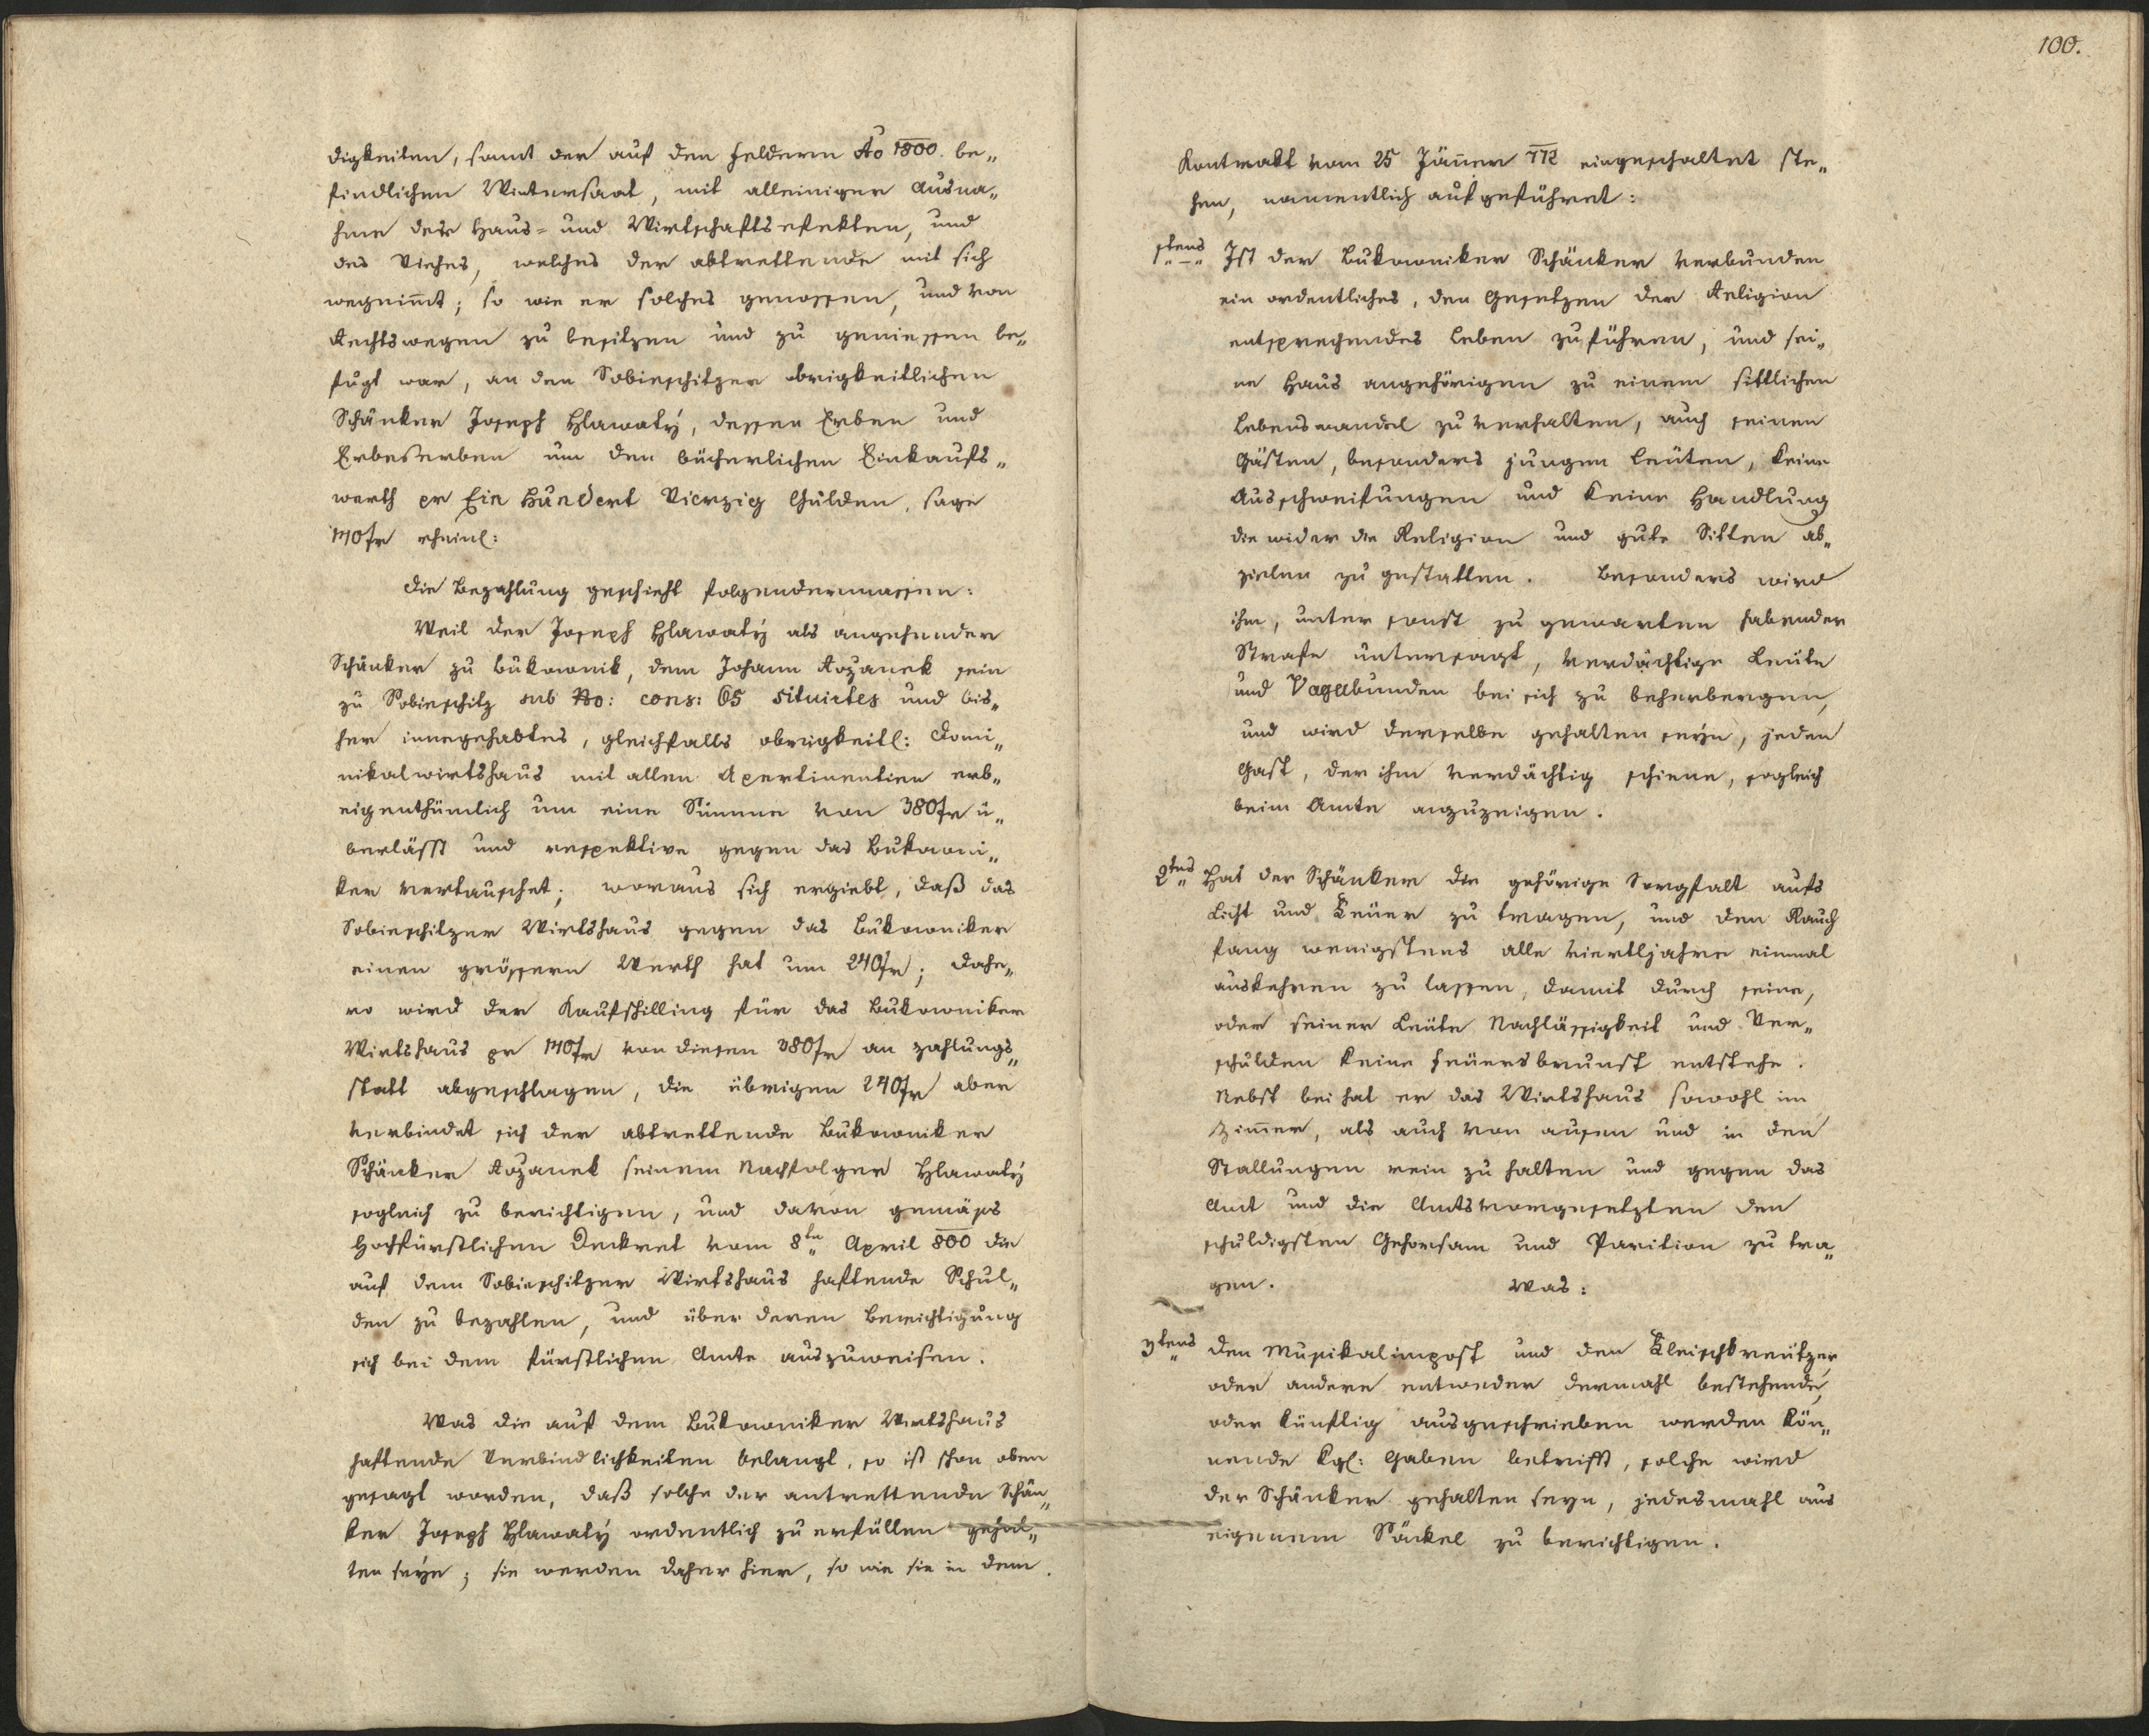 digkeiten, samt der auf den Feldern Ao 1800. be„
findlichen Wintersaat, mit alleiniger Ausna„
hme der Haus- und Wirtschaftsefekten, und
des Viehes, welches der abtrettende mit sich
wegnim̄t; so wie er solches genossen, und von
Rechtswegen zu besitzen und zu geniessen be„
fugt war, an den Sobieschitzer obrigkeitlichen
Schänker Joseph Hlawatý, dessen Erben und
Erbeserben um den bücherlichen Einkaufs„
werth pr Ein Hundert Vierzig Gulden, sage
140fr rheinl:
Die Bezahlung geschieht folgendermassen:
Weil der Joseph Hlawatý als angehender
Schänker zu Bukownik, dem Johann Rozanek sein
zu Sobieschitz sub No: cons: 65 situirtes und bis„
her innegehabtes, gleichfalls obrigkeitl: Domi„
nikalwirtshaus mit allen Apertinentien erb„
eigenthümlich um eine Summe von 380fr ü„
berlässt und respektive gegen das Bukowni„
ker vertauschet; woraus sich ergiebt, daß das
Sobieschitzer Wirtshaus gegen das Bukowniker
einen grössern Werth hat um 240fr; dahe„
ro wird der Kaufschilling für das Bukowniker
Wirtshaus pr 140fr von diesen 380fr an zahlungs„
statt abgeschlagen, die übrigen 240fr aber
verbindet sich der abtrettende Bukowniker
Schänker Rozanek seinem Nachfolger Hlawatý
sogleich zu berichtigen, und davon gemäss
Hochfürstlichen Deckret vom 8ten April 800 die
auf dem Sobieschitzer Wirtshaus haftende Schul„
den zu bezahlen, und über deren Berichtigung
sich bei dem fürstlichen Amte auszuweisen.
Was die auf dem Bukowniker Wirtshaus
haftende Verbindlichkeiten belangt, so ist schon oben
gesagt worden, daß solche der antrettende Schän„
ker Joseph Hlawatý ordentlich zu erfüllen gehal„
ten seyn; sie werden daher hier, so wie sie in dem
100.
Kontrakt vom 25 Jäner 772 eingeschaltet ste„
hen, namentlich aufgeführet:
1tens Ist der Bukowniker Schänker verbunden
ein ordentliches, den Gesetzen der Religion
entsprechendes Leben zu führen, und sei„
ne Haus angehörigen zu einem sittlichen
Lebenswandel zu verhalten, auch seinen
Gästen, besonders jungen Leüten, keine
Ausschweifungen und keine Handlung
die wider die Religion und gute Sitten ab„
zielen zu gestatten. Besonders wird
ihm, unter sonst zu gewarten habender
Strafe untersagt, verdächtige Leüte
und Vagabunden bei sich zu beherbergen,
und wird derselbe gehalten seyn, jeden
Gast, der ihm verdächtig schiene, sogleich
beim Amte anzuzeigen.
2tens Hat der Schänker die gehörige Sorgfalt aufs
Licht und Feüer zu tragen, und den Rauch
fang wenigstens alle Viertljahre einmal
auskehren zu lassen, damit durch seine,
oder seiner Leüte Nachlässigkeit und Ver„
schulden keine Feüersbrunst entstehe.
Nebst bei hat er das Wirtshaus sowohl im
Zim̄er, als auch von aussen und in den
Stallungen rein zu halten und gegen das
Amt und die Amtsvorgesetzten den
schuldigsten Gehorsam und Parition zu tra„
gen. Was:
3tens den Musikalimpost und den Fleischkreützer
oder andere entweder dermahl bestehende,
oder künftig ausgeschrieben werden kön„
nende Kgl: Gaben betrifft, solche wird
der Schänker gehalten seyn, jedesmahl aus
eigenem Säckel zu berichtigen.